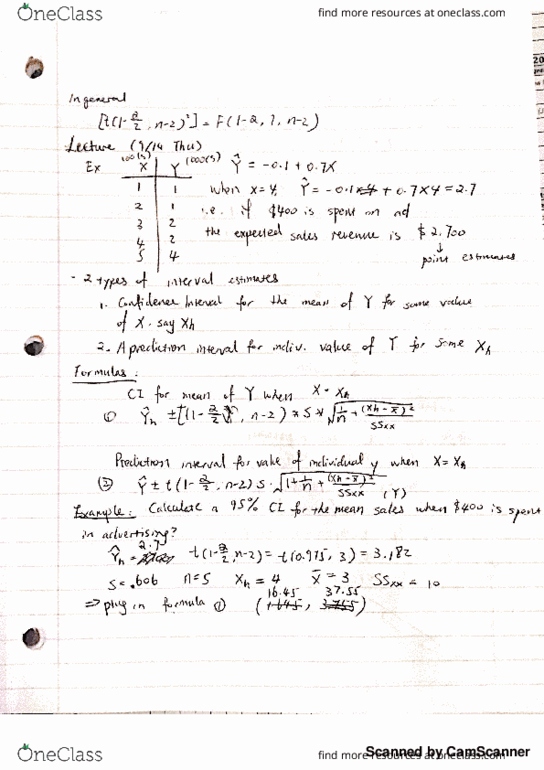 OneClass
find more resources at oneclass.com
In general
[t(1-α/2, n-2)²] = F(1-α, 1, n-2)
Lecture (9/14 Thu)
Ex 100($) X Y 1000($) Ŷ = -0.1 + 0.7X
1 1 when x=4, Ŷ = -0.1 + 0.7×4 = 2.7
2 1 i.e. if $400 is spent on ad
3 2 the expected sales revenue is $2,700
4 2 ↓
5 4 point estimates
- 2 types of interval estimates
1. Confidence Interval for the mean of Y for some value
of X, say Xh
2. A prediction interval for indiv. value of Y for some Xh
Formulas:
CI for mean of Y when X = Xh
① Ŷh ± t(1-α/2, n-2) * S * √(1/n + (Xh - x̄)²/SSxx)
Prediction interval for value of individual y when X = Xh
② Ŷ ± t(1-α/2, n-2) S · √(1 + 1/n + (Xh - x̄)²/SSxx) (Y)
Example: Calculate a 95% CI for the mean sales when $400 is spent
in advertising?
Ŷh = 2.7 t(1-α/2, n-2) = t(0.975, 3) = 3.182
S = .606 n=5 Xh = 4 x̄ = 3 SSxx = 10
⇒ plug in formula ① (16.45, 37.55)
OneClass
find more resources at oneclass.com
Scanned by CamScanner